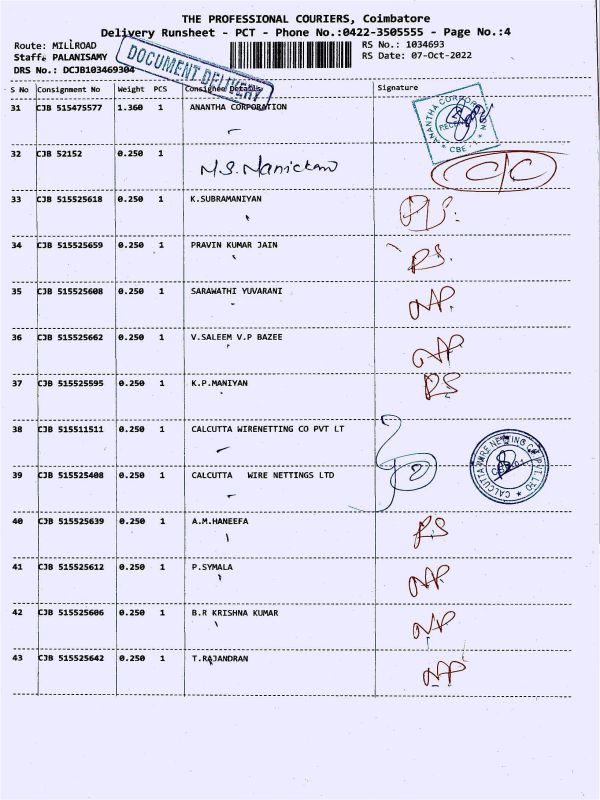 THE PROFESSIONAL COURIERS, Coimbatore
Delivery Runsheet - PCT - Phone No.:0422-3505555 - Page No.:4
Route: MILLROAD RS No.: 1034693
Staff: PALANISAMY RS Date: 07-Oct-2022
DRS No.: DCJB103469304
DOCUMENT DELIVERY
S No Consignment No Weight PCS Consignee Details Signature
31 CJB 515475577 1.360 1 ANANTHA CORPORATION
ANANTHA CORPORATION
CBE
32 CJB 52152 0.250 1 M.S. Manickam C/C
33 CJB 515525618 0.250 1 K.SUBRAMANIYAN
34 CJB 515525659 0.250 1 PRAVIN KUMAR JAIN RS.
35 CJB 515525608 0.250 1 SARAWATHI YUVARANI NP.
36 CJB 515525662 0.250 1 V.SALEEM V.P BAZEE NP
37 CJB 515525595 0.250 1 K.P.MANIYAN RS
38 CJB 515511511 0.250 1 CALCUTTA WIRENETTING CO PVT LT
CALCUTTA WIRE NETTING CO PVT LTD
39 CJB 515525408 0.250 1 CALCUTTA WIRE NETTINGS LTD 2
40 CJB 515525639 0.250 1 A.M.HANEEFA RS
41 CJB 515525612 0.250 1 P.SYMALA NP.
42 CJB 515525606 0.250 1 B.R KRISHNA KUMAR NP
43 CJB 515525642 0.250 1 T.RAJANDRAN NP